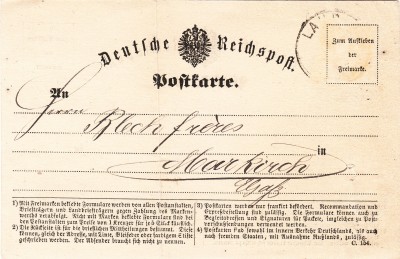 Deutsche Reichspost.
Postkarte.
Zum Aufkleben
der
Freimarke.
An
Herrn Blech frères
in
Markirch
Elsaß
1) Mit Freimarken beklebte Formulare werden von allen Postanstalten,
Briefträgern und Landbriefträgern gegen Zahlung des Marken-
werths verabfolgt. Nicht mit Marken beklebte Formulare sind bei
den Postanstalten zum Preise von
2) Die Rückseite ist für die brieflichen Mittheilungen bestimmt. Diese
können, gleich der Adresse, mit Tinte, Bleifeder oder farbigem Stifte
geschrieben werden. Der Absender braucht sich nicht zu nennen.
3) Postkarten werden nur frankirt befördert. Recommandation und
Expreßbestellung sind zulässig. Die Formulare können auch zu
Begleitadressen und Postanweisungen
4) Postkarten sind sowohl im innern Verkehr Deutschlands, als auch
nach fremden Staaten, mit Ausnahme Rußlands, zulässig.
C. 154.